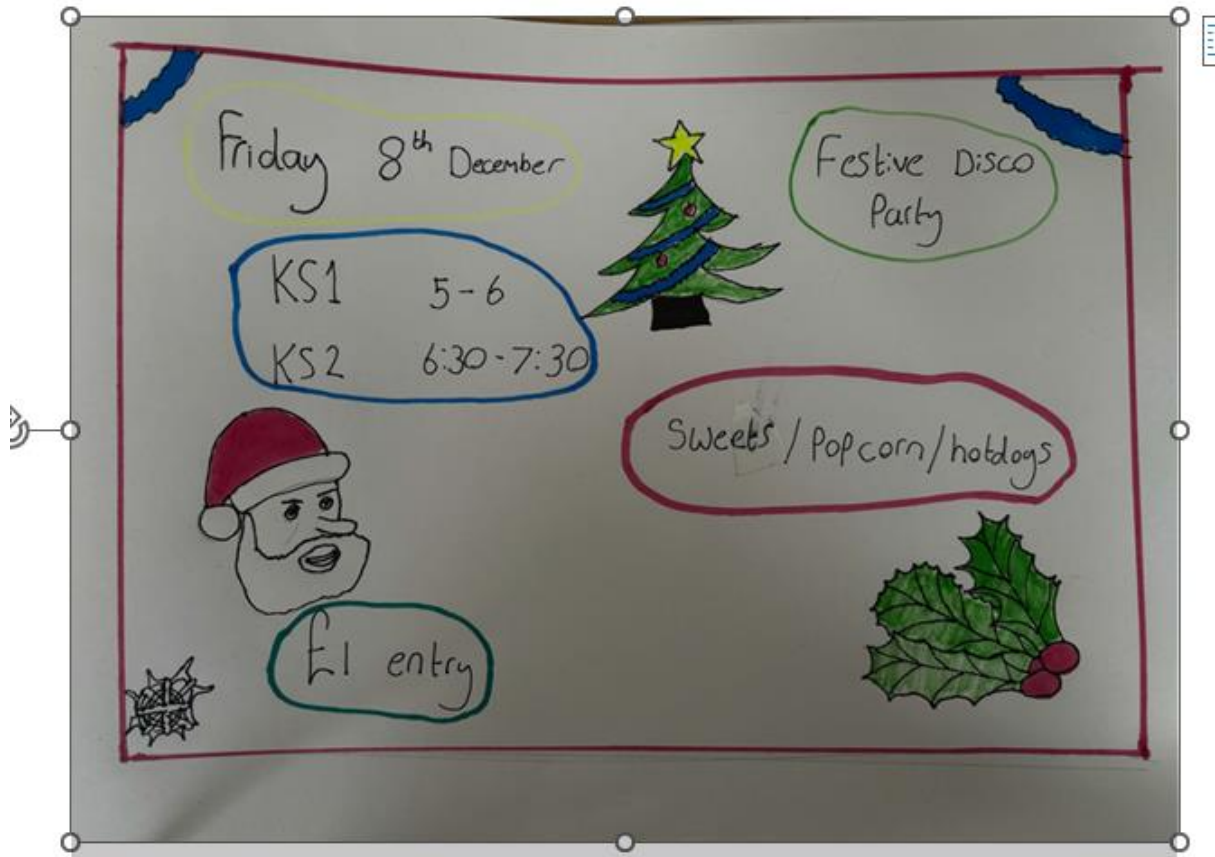 Friday 8th December
Festive Disco
Party
KS1 5-6
KS2 6:30-7:30
Sweets/Popcorn/hotdogs
£1 entry